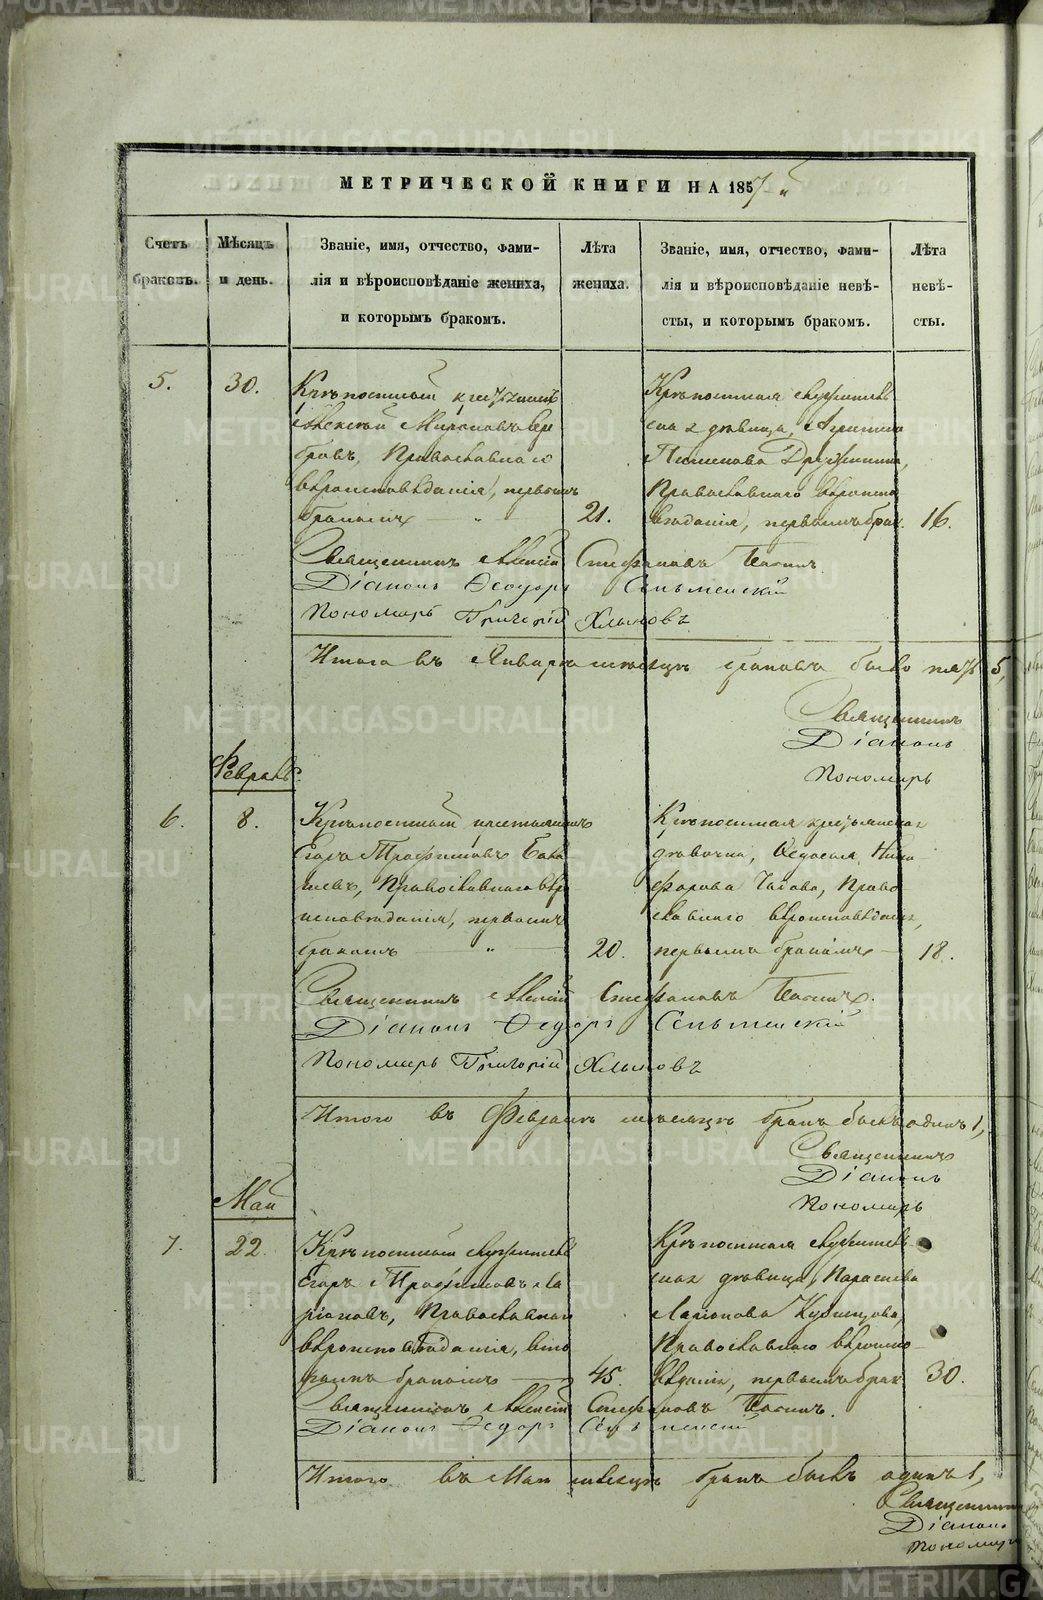 МЕТРИЧЕСКОЙ КНИГИ НА 1857
Счетъ браковъ.
Мѣсяцъ и день.
Званіе, имя, отчество, фами-
лія и вѣроисповѣданіе жениха,
и которымъ бракомъ.
Лѣта жениха.
Званіе, имя, отчество, фами-
лія и вѣроисповѣданіе невѣ-
сты, и которымъ бракомъ.
Лѣта невѣ-
сты.
5.
30.
Крѣпостный
Алексѣй Мироновъ
Православнаго
вѣроисповѣданія, первымъ
бракомъ
21.
Крѣпостная служитель
ская дѣвица,
Пименова Дружинина,
Православнаго вѣроиспо
вѣданія, первымъ брак.
16.
Священникъ Алексій Стефановъ
Діаконъ Ѳеодоръ
Пономарь Григорій Хлыновъ
Итого въ Январѣ мѣсяцѣ браковъ было пять 5,
Священникъ
Діаконъ
Пономарь
Февраль.
6.
8.
Крѣпостный крестьянинъ
Егоръ Трофимовъ
Православнаго вѣро
исповѣданія, первымъ
бракомъ
20.
Крѣпостная крестьянская
дѣвица, Ѳедосья Ники-
форова Право
славнаго вѣроисповѣданія,
первымъ бракомъ
18.
Священникъ Алексій Стефановъ
Діаконъ Ѳедоръ
Пономарь Григорій Хлыновъ
Итого въ Февралѣ мѣсяцѣ бракъ былъ одинъ 1,
Священникъ
Діаконъ
Пономарь
Май
7.
22.
Крѣпостный служитель
Егоръ Трофимовъ Ла
ріоновъ, Православнаго
вѣроисповѣданія, вто
рымъ бракомъ
45.
Крѣпостная служитель-
ская дѣвица, Параскева
Ларіонова Кузнецова,
Православнаго вѣроиспо-
вѣданія, первымъ брак.
30.
Священникъ Алексій Стефановъ
Діаконъ Ѳедоръ
Итого въ Маѣ мѣсяцѣ бракъ былъ одинъ 1,
Священникъ
Діаконъ
Пономарь
METRIKI.GASO-URAL.RU